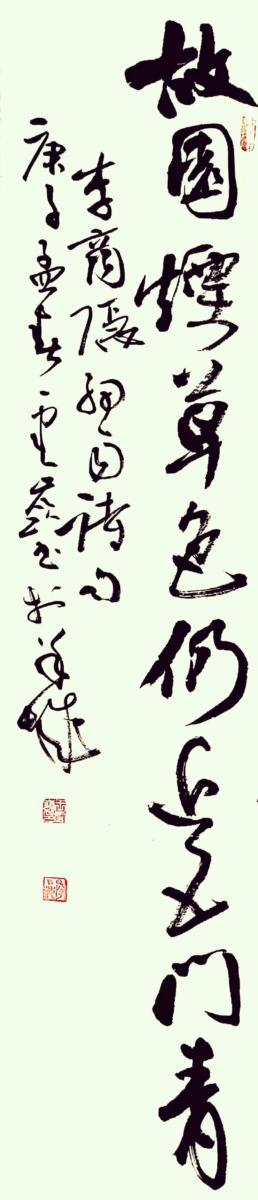 故園煙草色仍近五門青
李商隱細雨詩句
庚子孟春書於羊城